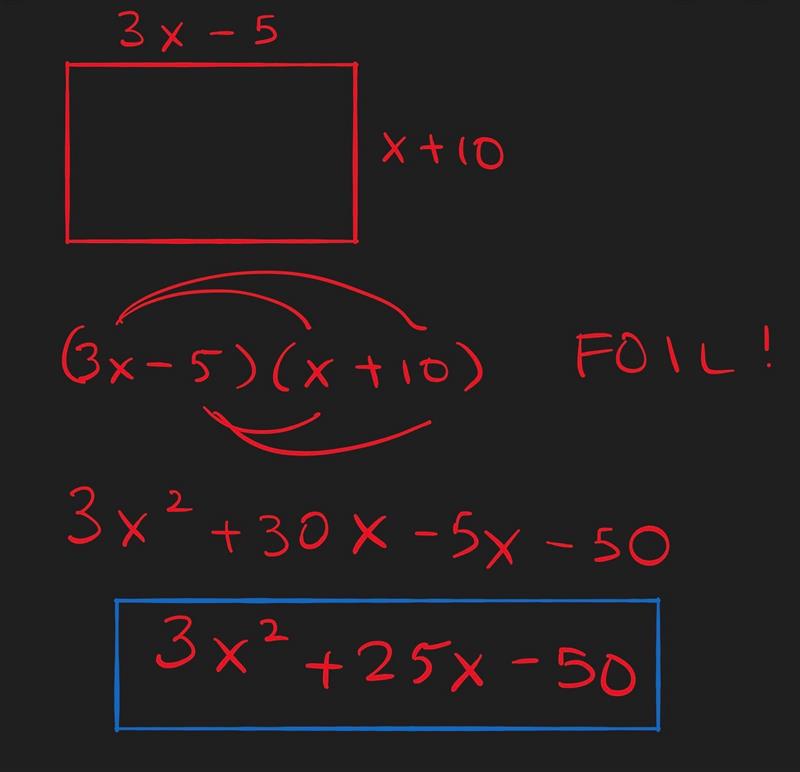 3x - 5
x + 10
(3x - 5)(x + 10) FOIL!
3x² + 30x - 5x - 50
3x² + 25x - 50